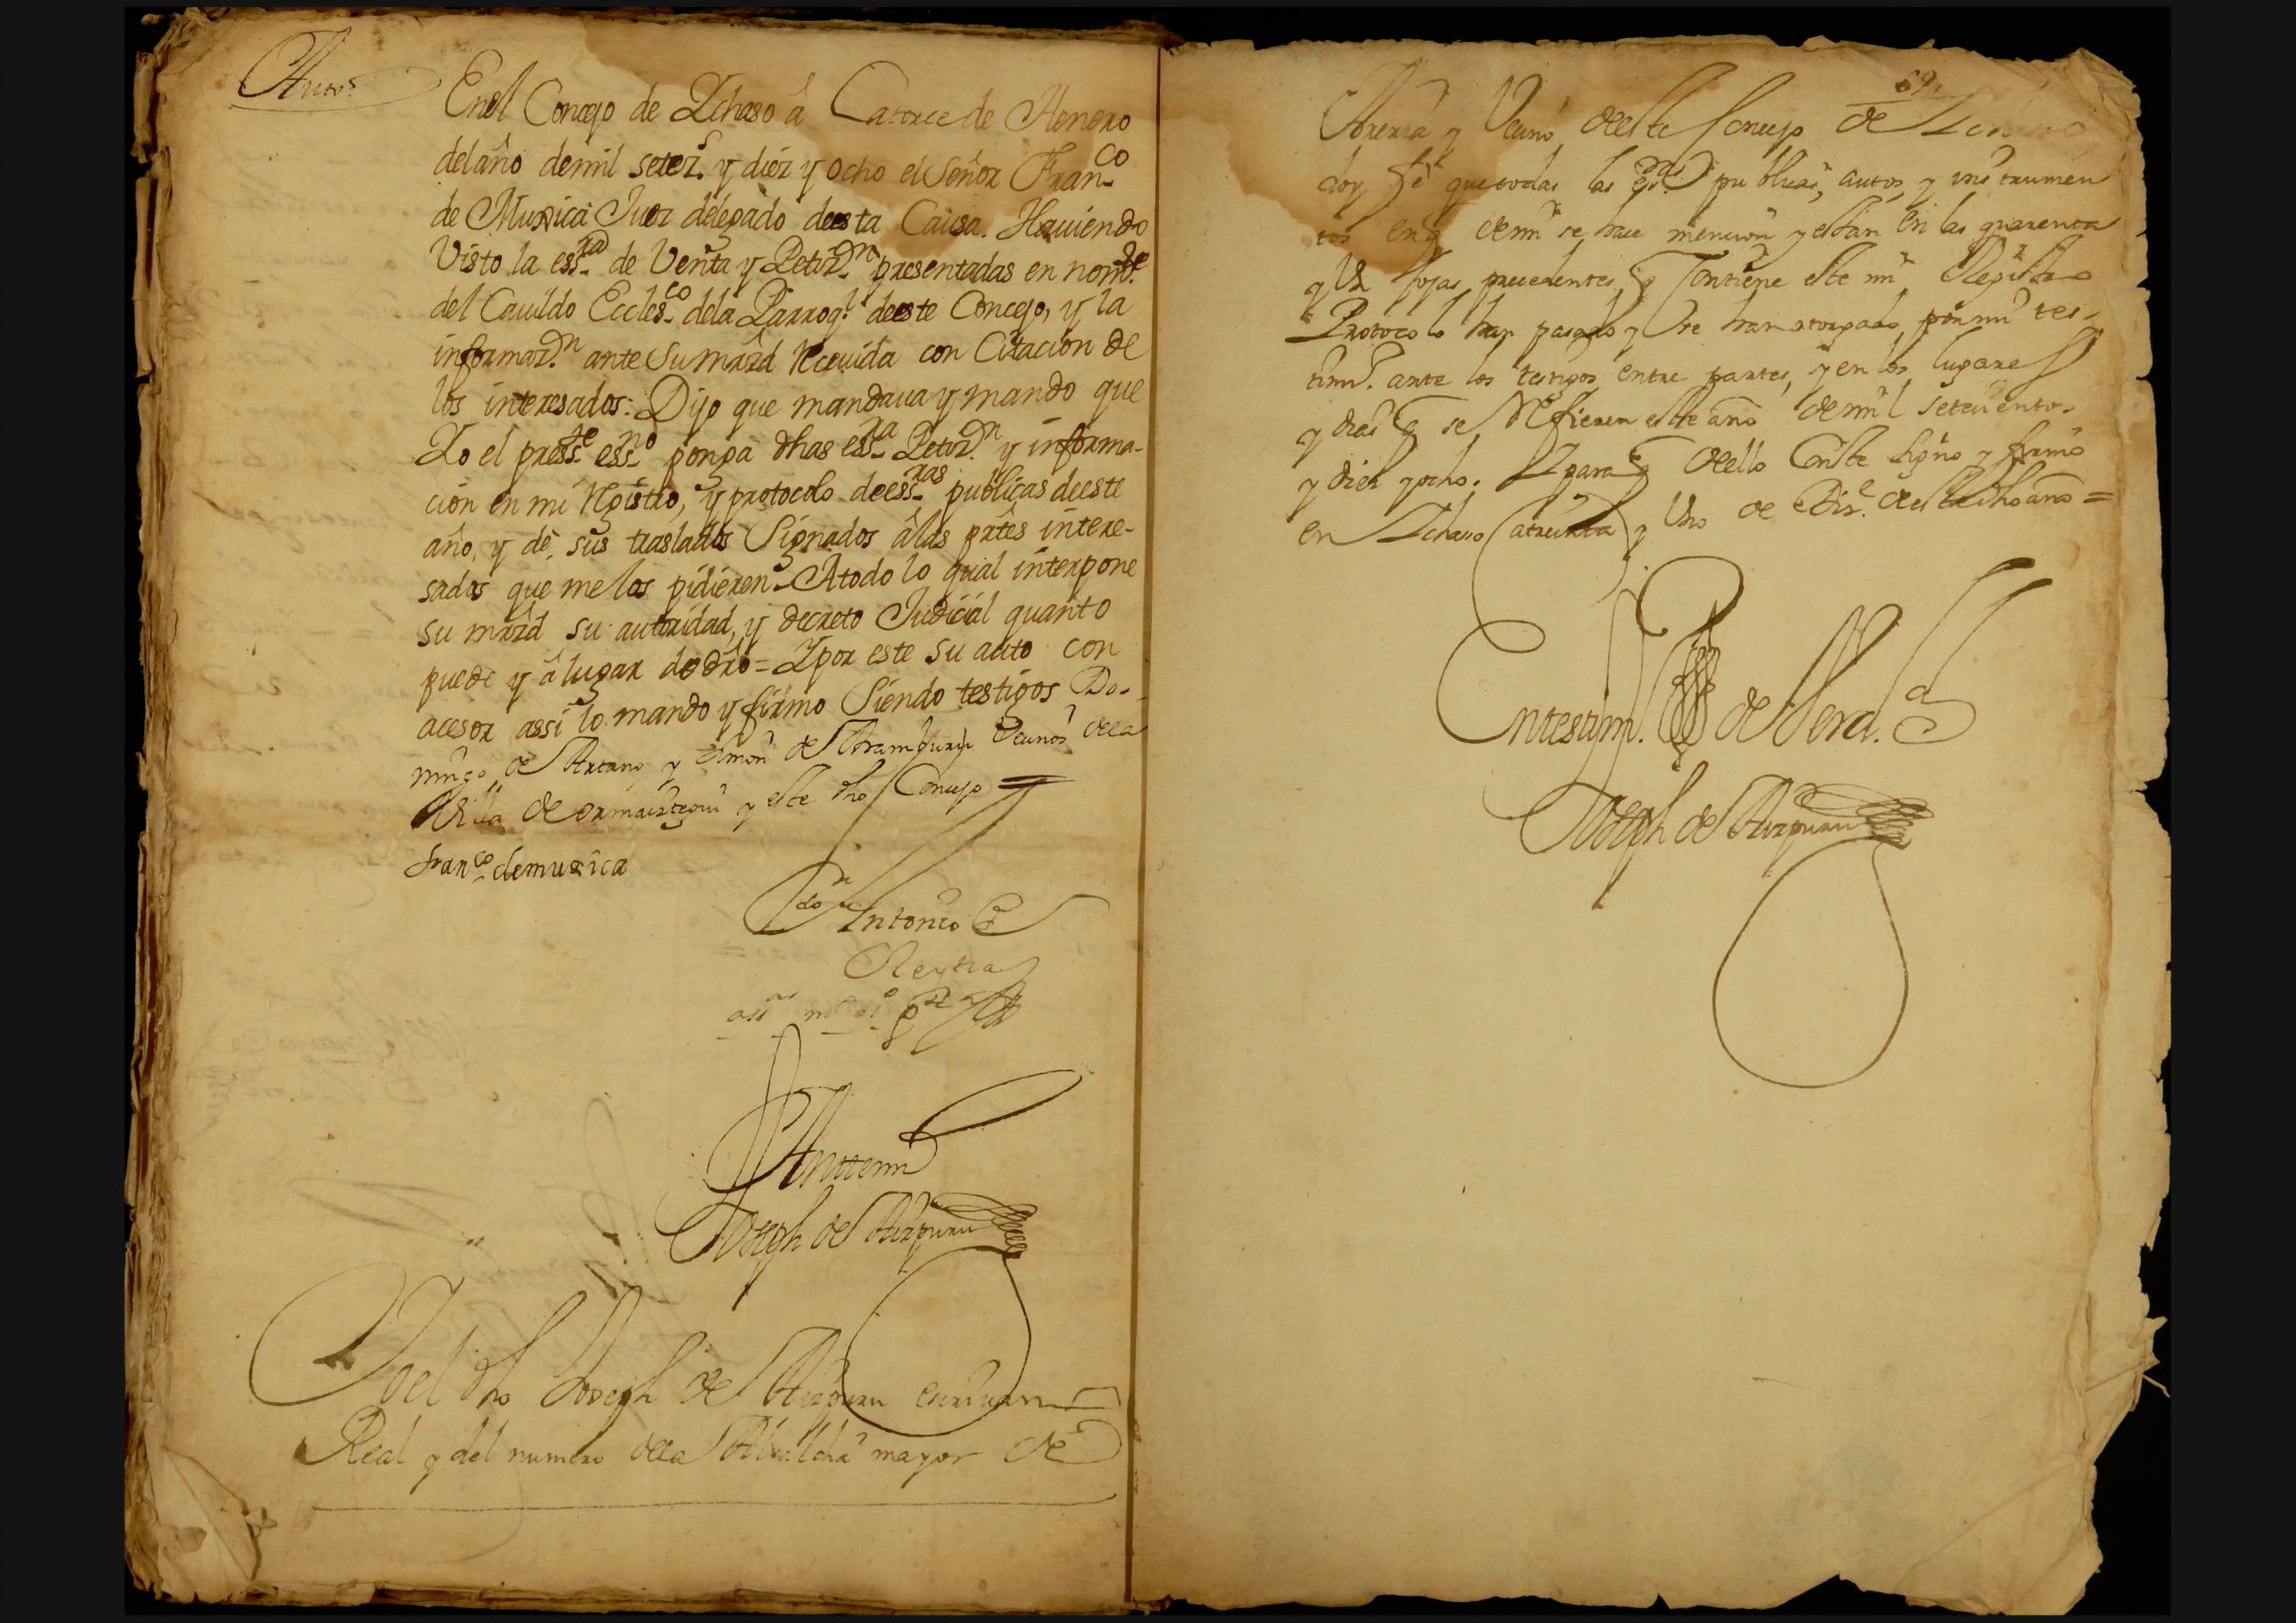 Auto
En el Concejo de Ychaso â Catorce de Henero
del año de mil setez.s y diez y ocho el Señor Fran.co
de Muxica Juez delegado deesta Causa. Haviendo
Visto la ess.ra de Venta y Petiz.on presentadas en nom.e
del Cavildo Eccles.co de la Parroq.l deeste Concejo, y la
informaz.on ante Su mrzd Recevida con Citacion de
los interesados: Dijo que mandava y mando que
Yo el press.te ess.no ponga dhas ess.ra Petiz.on y informa-
cion en mi Registro, y protocolo de ess.ras publicas deeste
año, y dè sus traslados Signados â las prtes intere-
sados que me los pidieren. A todo lo qual interpone
su mrzd su autoridad, y decreto Judicial quanto
puede y â lugar de dro = Y por este su auto con
acesor assi lo mando y firmo Siendo testigos Do-
mingo de Artano y Simon de Aramburu Vecinos dela
Villa de ormaiztegui y este dho Concejo =
Fran.co de muxica
Antonio
Ante mi
Joseph de Aizpuru
Yo el dho Joseph de Aizpuru escrivano
Real y del numero dela Alcaldia mayor de
69
Areria y Vecino deeste Concejo de Ychaso
doy feé que todas las es.ras publicas, autos, y instrumen
tos en q de mi se hace mencion y estan en las quarenta
y fojas precedentes q Contiene este mi Registro
Protocolo han pasado y se han otorgado por mi tes-
tim.o ante los testigos entre partes, y en los lugares
y dias q se Refieren este año de mil setecientos
y diez y ocho. Y para q dello Conste signo y firmo
en Ychaso a treinta y Uno de Diz.e deeste dho año =
En testim.o de Verd.
Joseph de Aizpuru